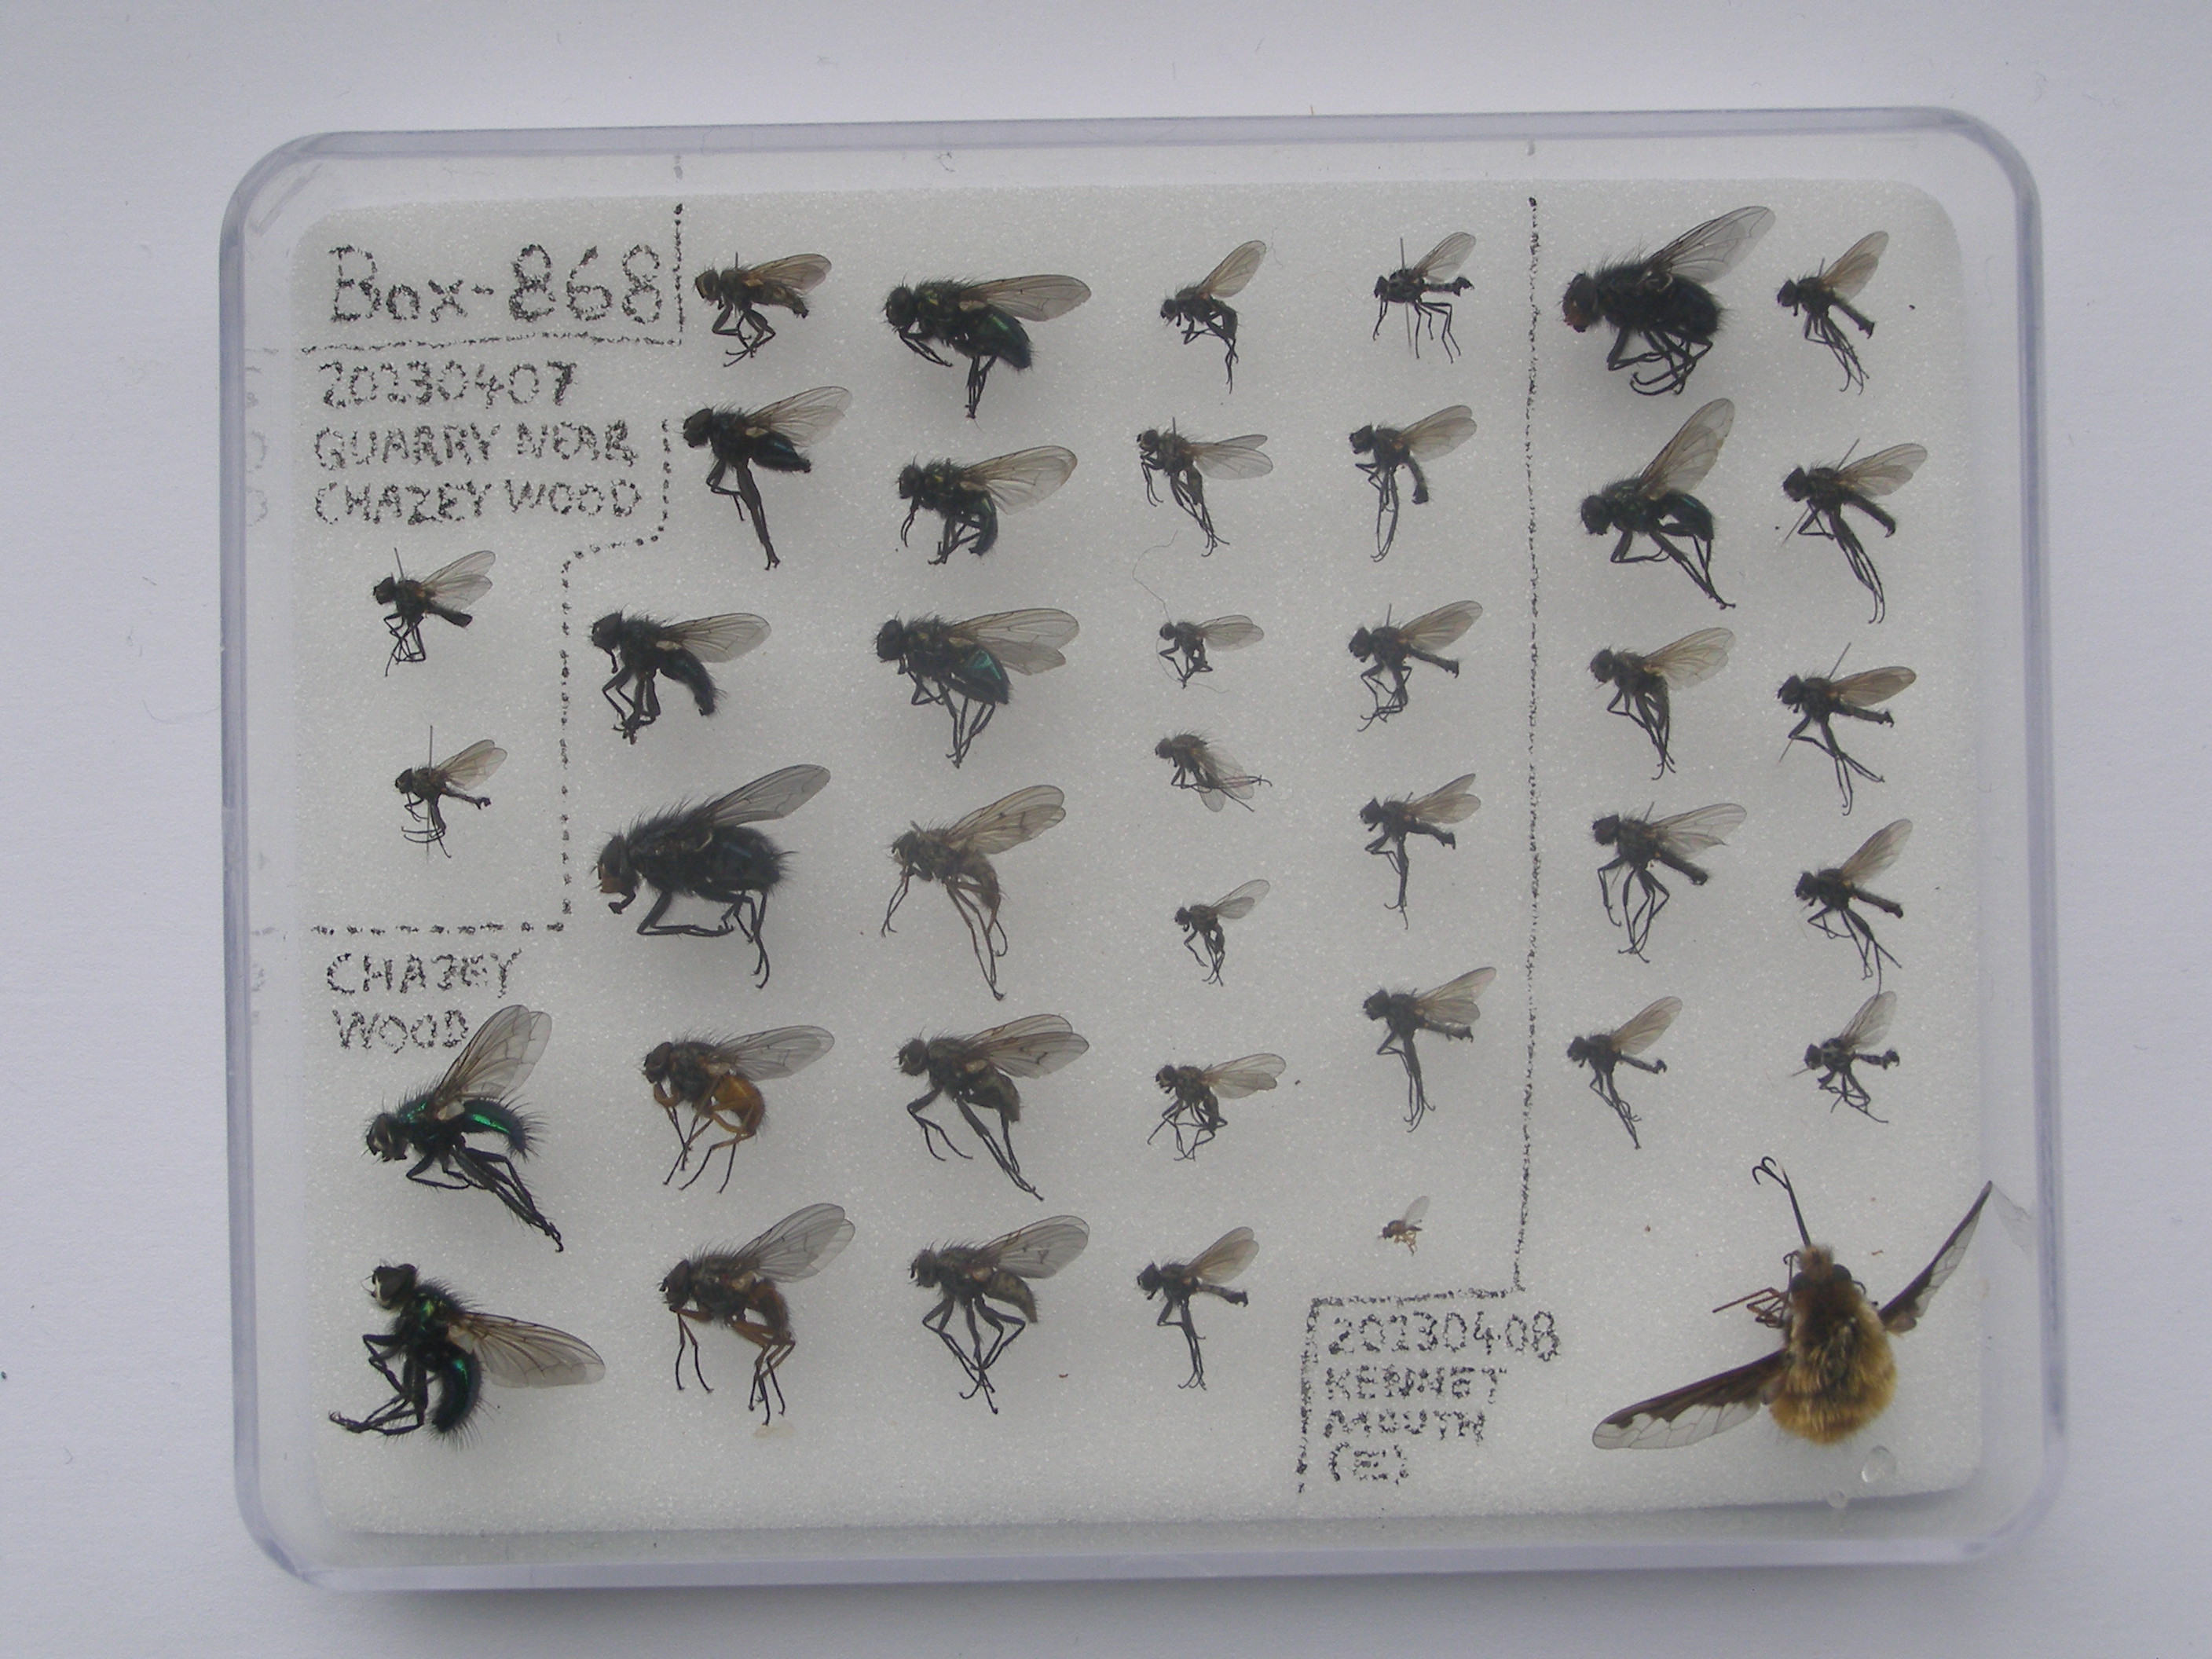 Box-868
20230407
QUARRY NEAR
CHAZEY WOOD
CHAZEY
WOOD
20230408
KENNET
MOUTH